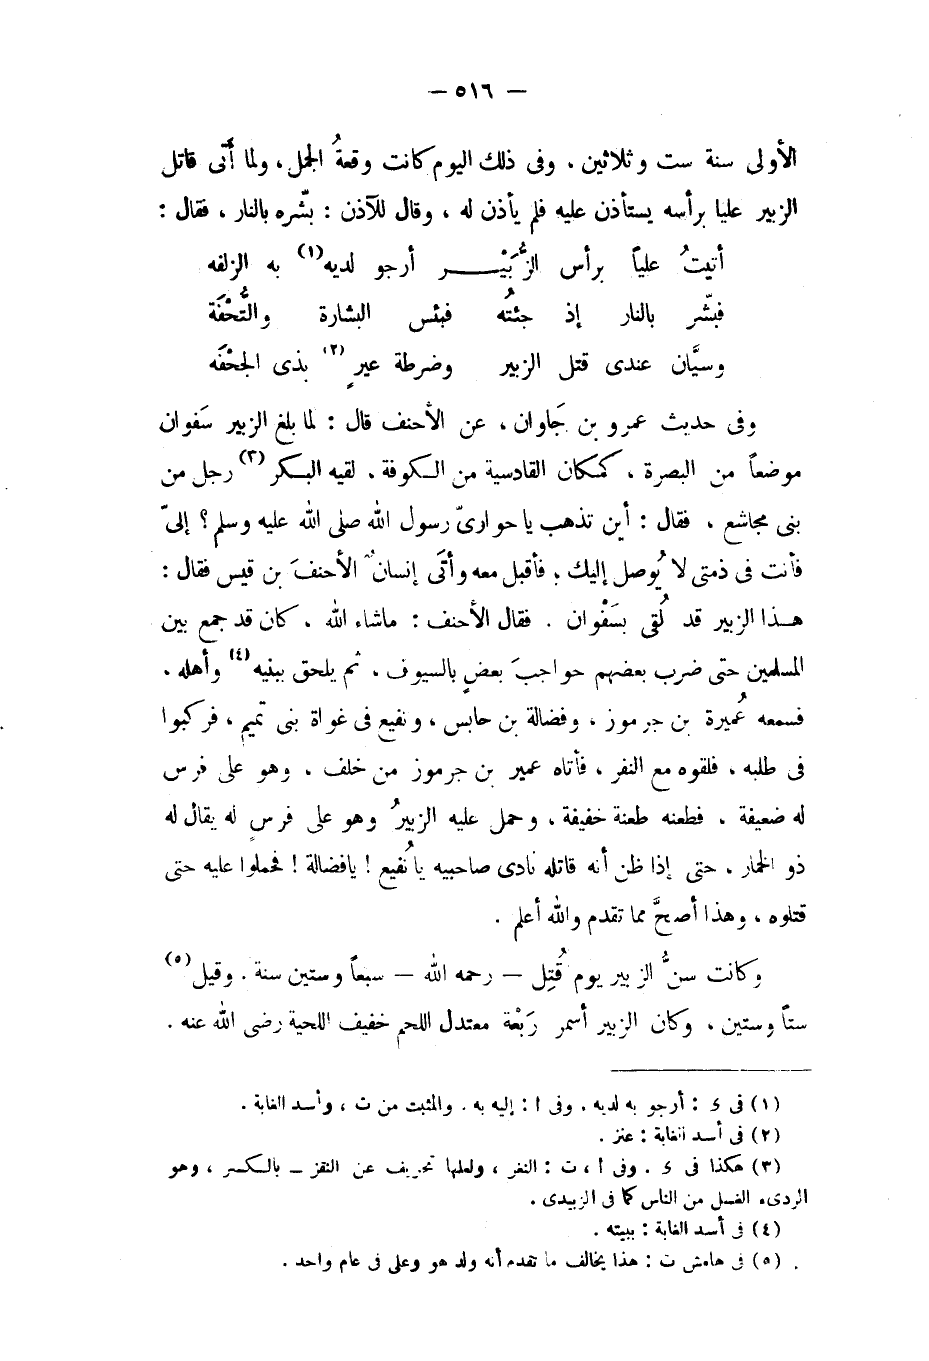 — ٥١٦ —
الأولى سنة ست وثلاثين . وفى ذلك اليوم كانت وقعةُ الجمل ، ولما أَتى قاتل
الزبير عليا برأسه يستأذن عليه فلم يأذن له ، وقال للآذن : بشّره بالنار ، فقال :
أتيتُ علياً برأس الزُّبَيْـــر أرجو لديه(١) به الزلفه
فبشّر بالنار إذ جئتُه فبئس البشارة والتُّحْفَة
وسيَّان عندى قتل الزبير وضرطة عيرٍ(٢) بذى الجحْفَه
وفى حديث عمرو بن جَاوان ، عن الأحنف قال : لما بلغ الزبير سَفوان
موضعاً من البصرة ، كمكان القادسية من الكوفة ، لقيه البكر(٣) رجل من
بنى مجاشع ، فقال : أين تذهب يا حوارىّ رسول الله صلى الله عليه وسلم ؟ إلىّ
فأنت فى ذمتى لا يُوصل إليك ؛ فأقبل معه وأتَى إنسانٌ الأحنفَ بن قيس فقال :
هـذا الزبير قد لُقى بسَفْوان . فقال الأحنف : ماشاء الله ، كان قد جمع بين
المسلمين حتى ضرب بعضهم حواجبَ بعضٍ بالسيوف ، ثم يلحق ببنيه(٤) وأهله .
فسمعه عُميرة بن جرموز ، وفضالة بن حابس ، ونفيع فى غواة بنى تميم ، فركبوا
فى طلبه ، فلقوه مع النفر ، فأتاه عمير بن جرموز من خلف ، وهو على فرس
له ضعيفة ، فطعنه طعنة خفيفة ، وحمل عليه الزبيرُ وهو على فرسٍ له يقال له
ذو الخمار ، حتى إذا ظن أنه قاتله نادى صاحبيه يا نُفيع ! يافضالة ! فحملوا عليه حتى
قتلوه ، وهذا أصحَّ مما تقدم والله أعلم .
وكانت سنُّ الزبير يوم قُتِل — رحمه الله — سبعاً وستين سنة . وقيل(٥)
ستاً وستين ، وكان الزبير أسمر رَبْعة معتدل اللحم خفيف اللحية رضى الله عنه .
(١) فى ى : أرجو به لديه . وفى ا : إليه به . والمثبت من ت ، وأسد الغابة .
(٢) فى أسد الغابة : عنز .
(٣) هكذا فى ى . وفى ا ، ت : النفر ، ولعلها تحريف عن النقز – بالكسر ، وهو
الردىء الفسل من الناس كما فى الزبيدى .
(٤) فى أسد الغابة : ببيته .
(٥) فى هامش ت : هذا يخالف ما تقدم أنه ولد هو وعلى فى عام واحد .